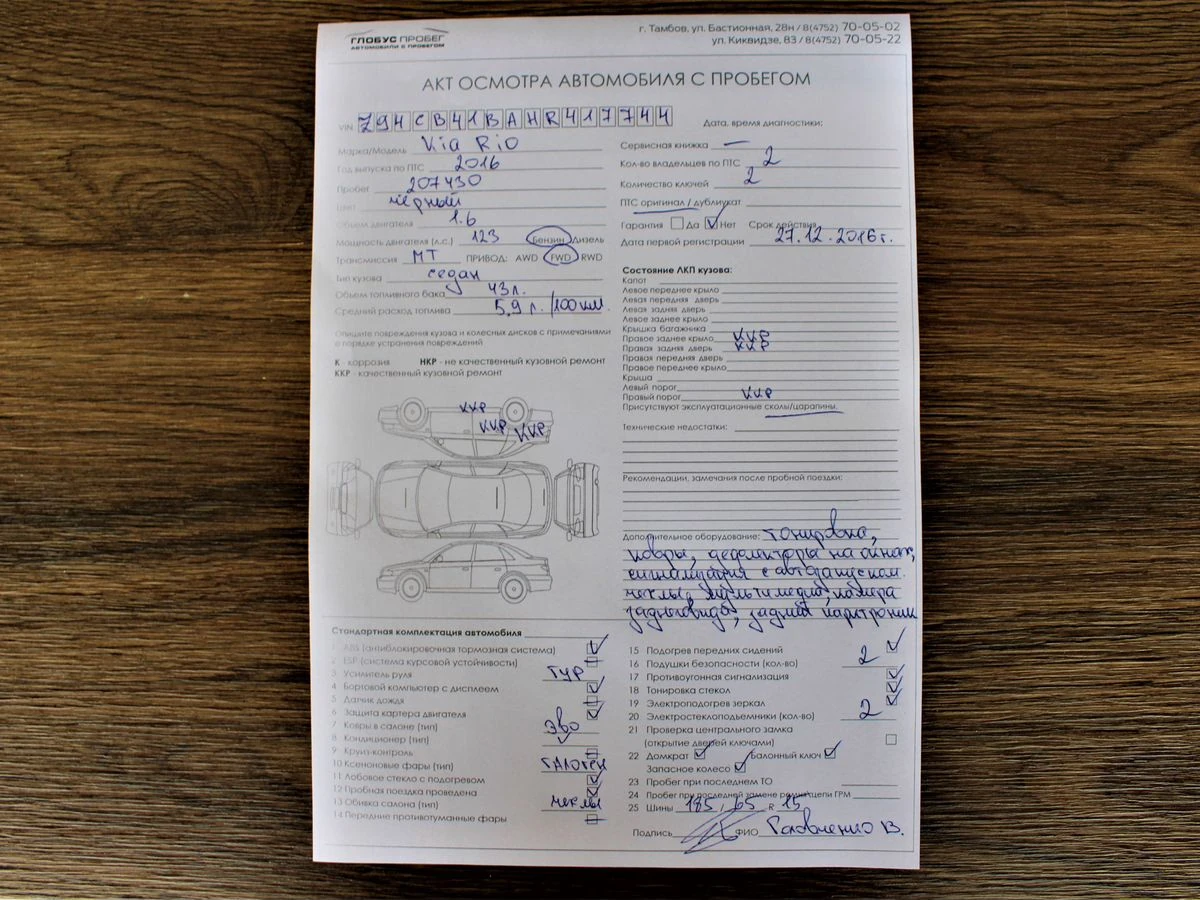 ГЛОБУС ПРОБЕГ
АВТОМОБИЛИ С ПРОБЕГОМ
г. Тамбов, ул. Бастионная, 28н / 8(4752) 70-05-02
ул. Киквидзе, 83 / 8(4752) 70-05-22
АКТ ОСМОТРА АВТОМОБИЛЯ С ПРОБЕГОМ
VIN Z94CB41BAHR417744
Марка/Модель Kia Rio
Год выпуска по ПТС 2016
Пробег 207430
Цвет чёрный
Объем двигателя 1.6
Мощность двигателя (л.с.) 123 Бензин Дизель
Трансмиссия МТ ПРИВОД: AWD FWD RWD
Тип кузова седан
Объем топливного бака 43л.
Средний расход топлива 5,9 л. /100км.
Опишите повреждения кузова и колесных дисков с примечаниями
о порядке устранения повреждений
К - коррозия НКР - не качественный кузовной ремонт
ККР - качественный кузовной ремонт
ККР
ККР
ККР
Дата, время диагностики:
Сервисная книжка —
Кол-во владельцев по ПТС 2
Количество ключей 2
ПТС оригинал / дубликат
Гарантия Да Нет Срок действия
Дата первой регистрации 27.12.2016г.
Состояние ЛКП кузова:
Капот
Левое переднее крыло
Левая передняя дверь
Левая задняя дверь
Левое заднее крыло
Крышка багажника
Правое заднее крыло ККР
Правая задняя дверь ККР
Правая передняя дверь
Правое переднее крыло
Крыша
Левый порог
Правый порог ККР
Присутствуют эксплуатационные сколы/царапины.
Технические недостатки:
Рекомендации, замечания после пробной поездки:
Дополнительное оборудование: тонировка,
ковры, дефлекторы на окнах,
сигнализация с автозапуском.
чехлы, мультимедиа, камера
заднего вида, задний парктроник
Стандартная комплектация автомобиля
1 ABS (антиблокировочная тормозная система)
2 ESP (система курсовой устойчивости)
3 Усилитель руля ГУР
4 Бортовой компьютер с дисплеем
5 Датчик дождя
6 Защита картера двигателя
7 Ковры в салоне (тип) эво
8 Кондиционер (тип)
9 Круиз-контроль
10 Ксеноновые фары (тип) галоген
11 Лобовое стекло с подогревом
12 Пробная поездка проведена
13 Обивка салона (тип) чехлы
14 Передние противотуманные фары
15 Подогрев передних сидений
16 Подушки безопасности (кол-во) 2
17 Противоугонная сигнализация
18 Тонировка стекол
19 Электроподогрев зеркал
20 Электростеклоподъемники (кол-во) 2
21 Проверка центрального замка
(открытие дверей ключами)
22 Домкрат Балонный ключ
Запасное колесо
23 Пробег при последнем ТО
24 Пробег при последней замене ремня/цепи ГРМ
25 Шины 185 / 65 R 15
Подпись ФИО Головченко В.